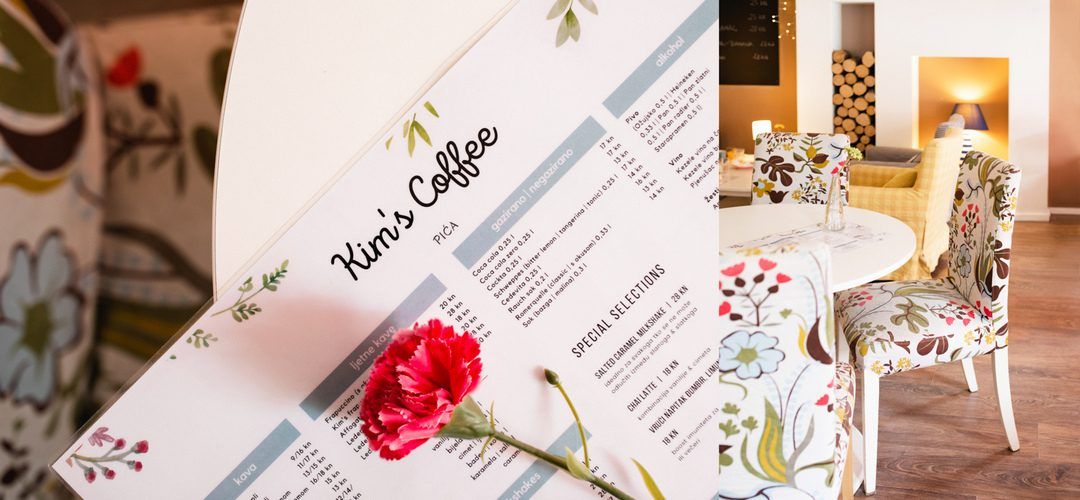 Kim's Coffee
PIĆA
kava
9/16 kn
11/17 kn
13/15 kn
16/18 kn
15 kn
12/14/
ljetne kave
Frapuccino
Kim's
Affoga
20 kn
28 kn
18 kn
20 kn
gazirano | negazirano
Coca cola 0,25 l
Coca cola zero 0,25 l
Cockta 0,25 l
Schweppes (bitter lemon | tangerina | tonic) 0,25 l
Cedevita 0,25 l
Rauch sok 0,2 l
Romerquelle (classic | s okusom) 0,33 l
Sok (bazga | malina) 0,3 l
17 kn
17 kn
13 kn
17 kn
14 kn
16 kn
13 kn
14 kn
alkohol
Pivo
(Ožujsko 0,5 l | Heineken
0,33 l | Pan 0,5 l | Pan zlatni
0,5 l | Pan radler 0,5 l |
Staropramen 0,5 l)
Vino
Kezele vino na
Kezele vino
Pjenušac
SPECIAL SELECTIONS
SALTED CARAMEL MILKSHAKE | 28 KN
idealno za svakoga tko se ne može
odlučiti između slanoga & slatkoga
CHAI LATTE | 18 KN
kombinacija vanilije & cimeta
VRUĆI NAPITAK ĐUMBIR, LIMU
18 KN
boost imuniteta za
ili večeri
vanil
cimet
karamela
caram
shakes